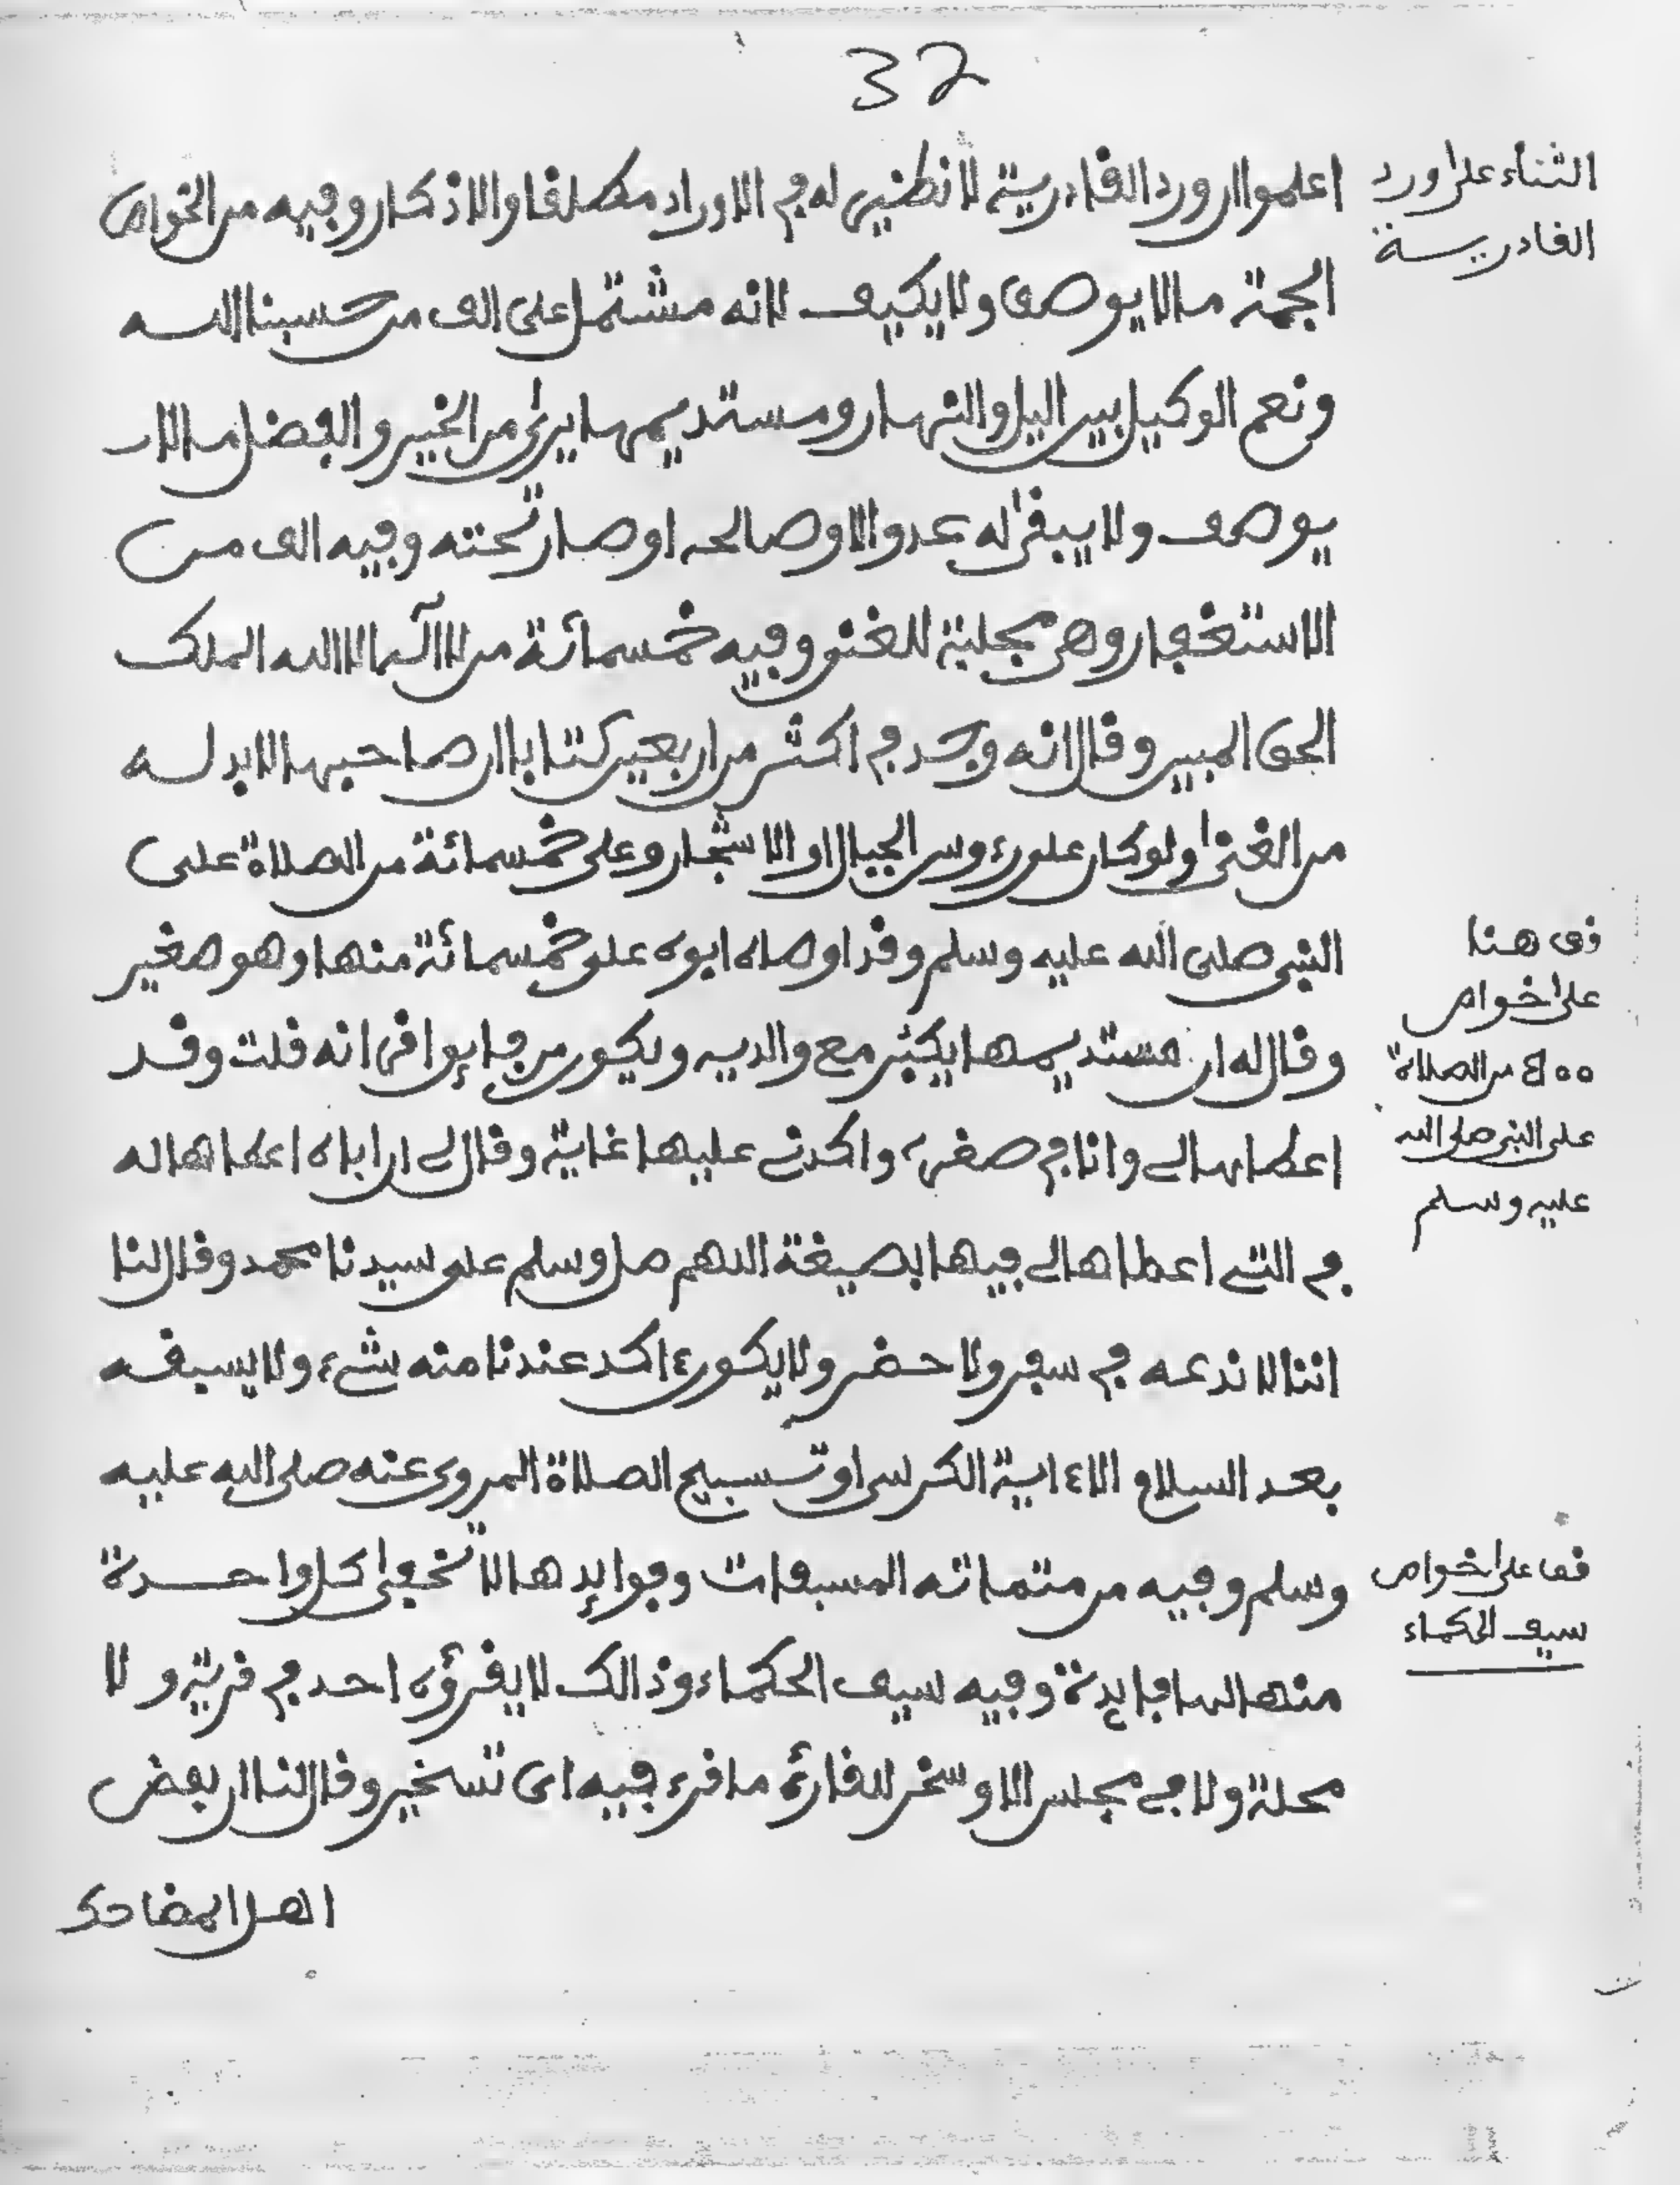 32
الثناء على ورد
القادرية
اعلموا ان ورد القادرية لا نظير له في الاوراد مطلقا والاذكار وفيه من الخواص
الجمة ما لا يوصف ولا يكيف لانه مشتمل على الف من حسبنا الله
ونعم الوكيل بين اليل والنهار ومستديمها يرى من الخير والفضل ما لا
يوصف ولا يبقى له عدو الا وصالحه او صار تحته وفيه الف من
الاستغفار وهي مجلبة للغنى وفيه خمسمائة من لا اله الا الله الملك
الحق المبين وقال انه وجد في اكثر من اربعين كتابا ان صاحبها لا بد له
من الغنى ولو كان على رءوس الجبال او الاشجار وعلى خمسمائة من الصلاة على
النبي صلى الله عليه وسلم وقد اوصاه ابوه على خمسمائة منها وهو صغير
وقال له ان مستديمها يكثر مع والديه ويكون من فايق اقرانه قلت وقد
اعطاها لي وانا في صغري واكدني عليها غاية وقال لي ان اباه اعطاها له
في التي اعطاها لي فيها بصيغة اللهم صل وسلم على سيدنا محمد وقال لنا
اننا لا ندعه في سفر ولا حضر ولا يكون ءاكد عندنا منه شيء ولا يسبقه
بعد السلام الا ءاية الكرسي او تسبيح الصلاة المروى عنه صلى الله عليه
وسلم وفيه من متماته المسبعات وفوايدها لا تخفى كل واحدة
منها لها فايدة وفيه سيف الحكماء وذالك لا يقرؤه احد في قرية ولا
محلة ولا في مجلس الا وسخر للقارئ ما قرء فيه اى تسخير وقال لنا ان بعض
اهل
قف هنا
على خواص
500 من الصلاة
على النبي صلى الله
عليه وسلم
قف على خواص
سيف الحكماء